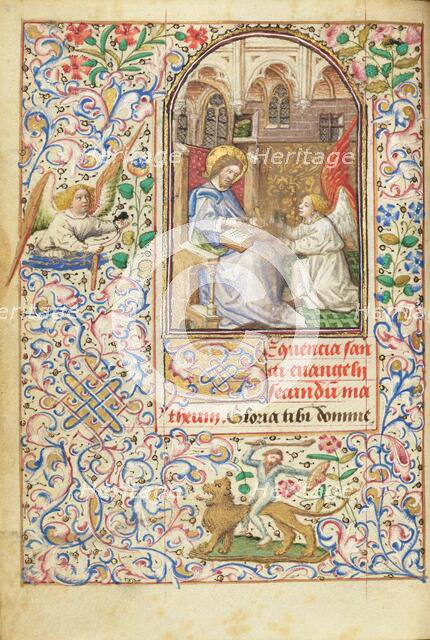 Sequencia san
cti euangelij
secundū ma
theum. Gloria tibi domine
Heritage
Heritage
Heritage